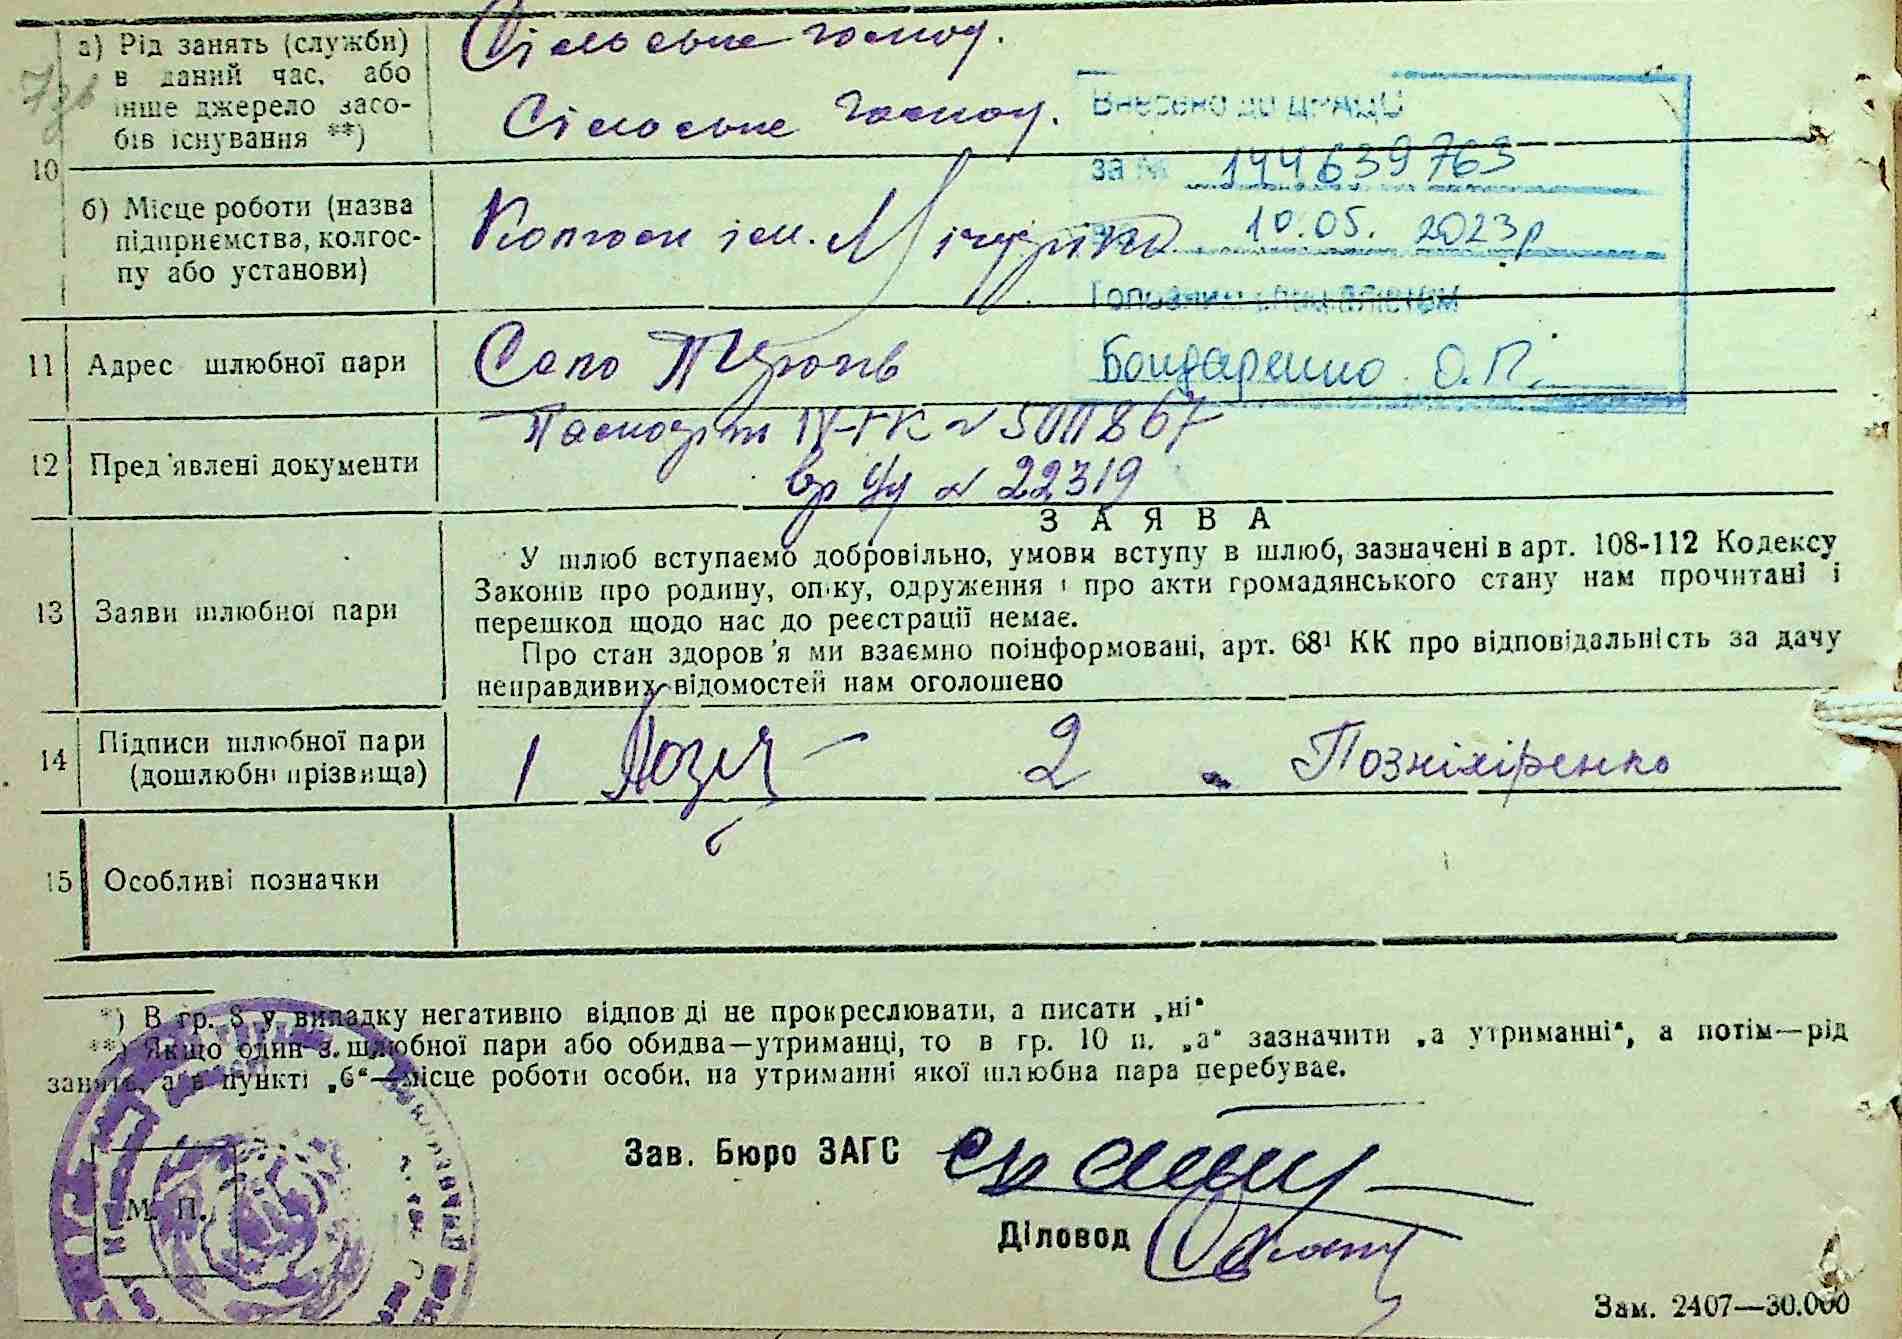 а) Рід занять (служби)
в даний час, або
інше джерело засо-
бів існування **)
Сільське господ.
Сільське господ.
10
б) Місце роботи (назва
підприємства, колгос-
пу або установи)
Колгосп ім. Мічуріна
Внесено до ДРАЦС
за № 144639763
10.05. 2023р
Головним спеціалістом
Бондаренко О.П.
11 Адрес шлюбної пари
Село
12 Пред'явлені документи
Паспорт IV-ГК № 5011867
№ 22319
13 Заяви шлюбної пари
ЗАЯВА
У шлюб вступаємо добровільно, умови вступу в шлюб, зазначені в арт. 108-112 Кодексу
Законів про родину, опіку, одруження і про акти громадянського стану нам прочитані і
перешкод щодо нас до реєстрації немає.
Про стан здоров'я ми взаємно поінформовані, арт. 68¹ КК про відповідальність за дачу
неправдивих відомостей нам оголошено
14 Підписи шлюбної пари
(дошлюбні прізвища)
1 2
15 Особливі позначки
*) В гр. 8 у випадку негативно відповіді не прокреслювати, а писати „ні“
**) Якщо один з шлюбної пари або обидва—утриманці, то в гр. 10 п. „а“ зазначити „а утриманні“, а потім—рід
занять, а в пункті „б“—місце роботи особи, на утриманні якої шлюбна пара перебуває.
М. П.
Зав. Бюро ЗАГС
Діловод
Зам. 2407—30.000